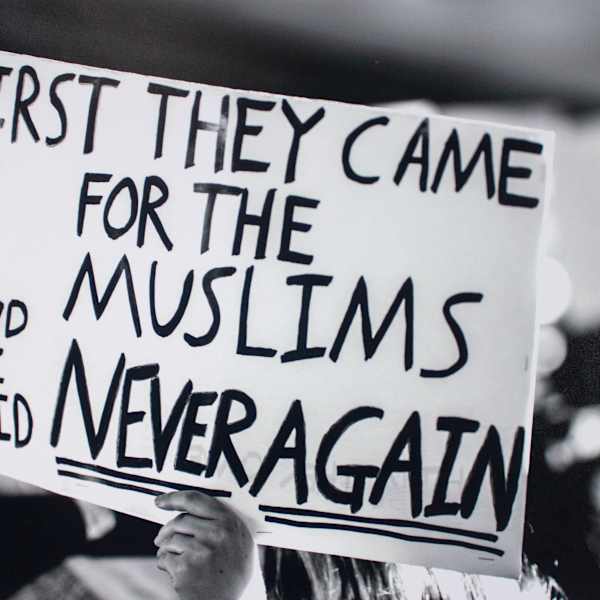 FIRST THEY CAME
FOR THE
MUSLIMS
NEVER AGAIN